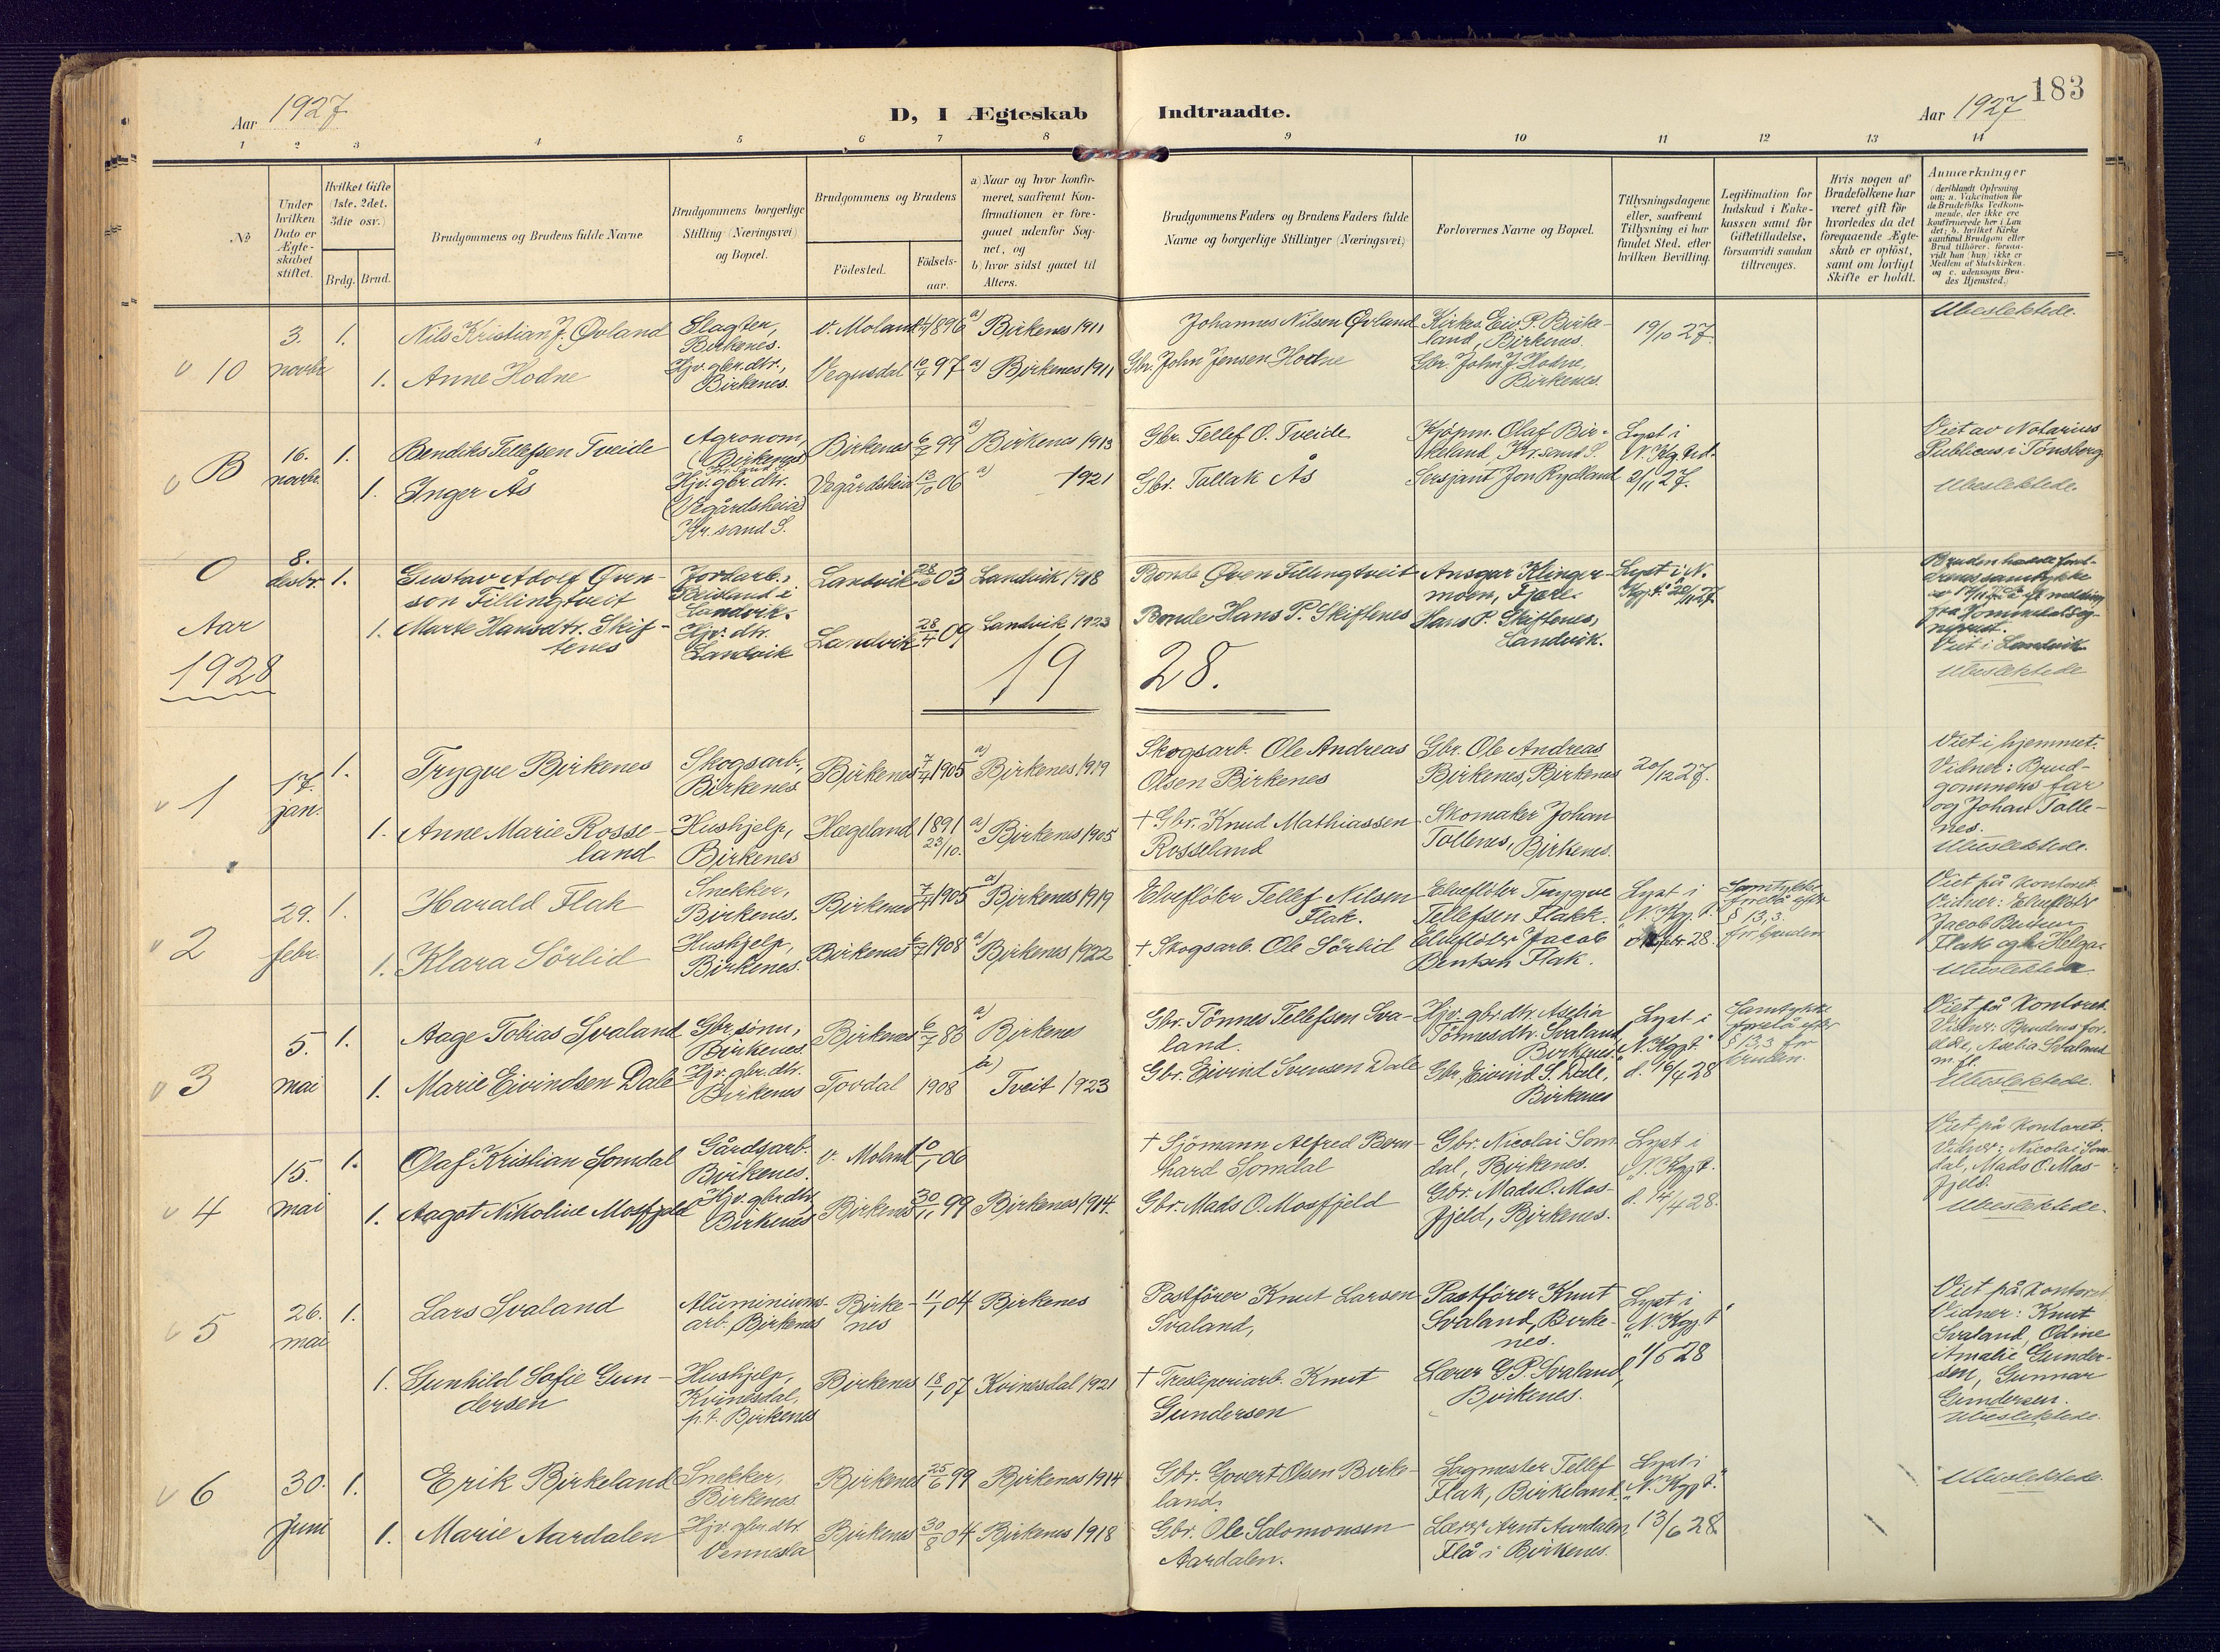 183
Aar 1927
D, I Ægteskab Indtraadte.
Aar 1927
1 2 3 4 5 6 7 8 9 10 11 12 13 14
№
Under hvilken Dato er Ægte-skabet stiftet.
Hvilket Gifte (1ste, 2det, 3die osv.)
Brdg. Brud.
Brudgommens og Brudens fulde Navne
Brudgommens borgerlige Stilling (Næringsvei) og Bopæl.
Brudgommens og Brudens
Födested.
Födsels-aar.
a) Naar og hvor konfir-meret, saafremt Kon-firmationen er fore-gaaet udenfor Sog-net, og
b) hvor sidst gaaet til Alters.
Brudgommens Faders og Brudens Faders fulde Navne og borgerlige Stillinger (Næringsvei)
Forlovernes Navne og Bopæl.
Tillysningsdagene eller, saafremt Tillysning ei har fundet Sted, efter hvilken Bevilling.
Legitimation for Indskud i Enke-kassen samt for Giftetilladelse, forsaavidt saadan tiltrænges.
Hvis nogen af Brudefolkene har været gift för hvorledes da det foregaaende Ægte-skab er oplöst, samt om lovligt Skifte er holdt.
Anmærkninger
10
3. novbr
1. Nils Kristian J. Øvland
Slagter, Birkenes.
V. Moland 4/8 96
a) Birkenes 1911
Johannes Nilsen Øvland
Kirkes. Eiv. P. Birke-land, Birkenes.
19/10 27.
Ubeslektede.
1. Anne Hodne
Hjv. gbr. dtr., Birkenes.
Vegusdal 97
a) Birkenes 1911
Gbr. John Jensen Hodne
Gbr. John J. Hodne, Birkenes.
B
16. novbr.
1. Bendiks Tellefsen Tveide
Agronom, (Birkenes)
Birkenes 99
a) Birkenes 1913
Gbr. Tellef O. Tveide
Kjøpm. Olaf Bir-keland, Kr.sand S.
Lyst i N. Kg. tid. 2/11 27.
Viet av Notarius Publicus i Tønsberg.
Ubeslektede.
1. Inger Ås
Hjv. gbr. dtr. (Vegårdsheia) Kr. sand S.
Vegårdsheia 13/10 06
a) 1921
Gbr. Tallak Ås
Sersjant Jon Rydland
C
8. desbr.
1. Gustav Adolf Øven-son Fillingtveit
Jordarb., Beisland i Landvik.
Landvik 03
Landvik 1918
Bonde Øven Fillingtveit
Ansgar Klinger-moen, Fjære
Lyst i N. Kgt.
1. Marte Hansdtr. Skif-tenes
Hjv. dtr. Landvik
Landvik 28/4 09
Landvik 1923
Bonde Hans P. Skiftenes
Hans P. Skiftenes, Landvik.
Viet i Landvik
Ubeslektede
Aar 1928
19 28.
1
17. jan.
1. Trygve Birkenes
Skogsarb., Birkenes
Birkenes 7/4 1905
a) Birkenes 1919
Skogsarb. Ole Andreas Olsen Birkenes
Gbr. Ole Andreas Birkenes, Birkenes
20/12 27.
Viet i hjemmet. Vidner: Brud-gommens far og Johan Tolle-nes.
Ubeslektede.
1. Anne Marie Rosse-land
Hushjelp, Birkenes
Hægeland 1891 23/10.
a) Birkenes 1905
† Gbr. Knud Mathiassen Rosseland
Skomaker Johan Tollenes, Birkenes.
2
29. febr.
1. Harald Flak
Snekker, Birkenes.
Birkenes 7/4 1905
a) Birkenes 1919
Elvefløter Tellef Nilsen Flak.
Elvefløter Trygve Tellefsen Flakk.
Lyst i N. Kgt. febr. 28.
Samtykke forelå efter § 13,3. for bruden
Viet på kontoret. Vidner: Elvefløter Jacob Bentsen Flak og Helga
Ubeslektede
1. Klara Sörlid
Hushjelp, Birkenes.
Birkenes 1908
a) Birkenes 1922
† Skogsarb. Ole Sörlid
Elvefløter Jacob Bentsen Flak.
3
5. mai
1. Aage Tobias Svaland
Gbr. sønn, Birkenes.
Birkenes 6/7 86
a) Birkenes
Gbr. Tönnes Tellefsen Sva-land.
Hjv. gbr. dtr. Aselia Tönnesdtr. Svaland, Birkenes
Lyst i "N. Kgpt." d. 16/4 28
Samtykke forelå efter § 13,3 for bruden.
Viet på kontoret. Vidner: Brudens for-eldre, Aselia Svaland m. fl.
Ubeslektede.
1. Marie Eivindsen Dale
Hjv. gbr. dtr. Birkenes
Tovdal 1908
a) Tveit 1923
Gbr. Eivind Svensen Dale
Gbr. Eivind S. Dale, Birkenes
4
15. mai
1. Olaf Kristian Somdal
Gårdsarb. Birkenes.
V. Moland 06
† Sjömann Alfred Bern-hard Somdal
Gbr. Nicolai Som-dal, Birkenes.
Lyst i "N. Kgpt." d. 14/4 28.
Viet på kontoret. Vidner: Nicolai Som-dal, Mads O. Mos-fjeld.
Ubeslektede.
1. Aagot Nikoline Mosfjeld
Hjv. gbr. dtr. Birkenes
Birkenes 30/11 99
Birkenes 1914.
Gbr. Mads O. Mosfjeld
Gbr. Mads O. Mos-fjeld, Birkenes.
5
26. mai
1. Lars Svaland
Aluminiums-arb. Birkenes
Birke-nes 11/1 04
Birkenes
Postfører Knut Larsen Svaland,
Postfører Knut Svaland, Birke-nes.
Lyst i "N. Kgpt." 28
Viet på kontoret Vidner: Knut Svaland, Odine Amalie Gunder-sen, Gunnar Gundersen.
Ubeslektede.
1. Gunhild Sofie Gun-dersen
Hushjelp, Kvinesdal, p.t. Birkenes
Birkenes 18/1 07
Kvinesdal 1921
† Tresliperiarb. Knut Gundersen
Lærer G. P. Svaland, Birkenes.
6
30. juni
1. Erik Birkeland
Snekker, Birkenes.
Birkenes 25/6 99
Birkenes 1914
Gbr. Govert Olsen Birke-land.
Sagmester Tellef Flak, Birkeland.
Lyst i "N. Kgpt." 13/6 28
Ubeslektede.
1. Marie Aardalen
Hjv. gbr. dtr. Vennesla
Birkenes 30/8 04
Birkenes 1918
Gbr. Ole Salomonsen Aardalen.
Lærer Arnt Aardalen, Flå i Birkenes.